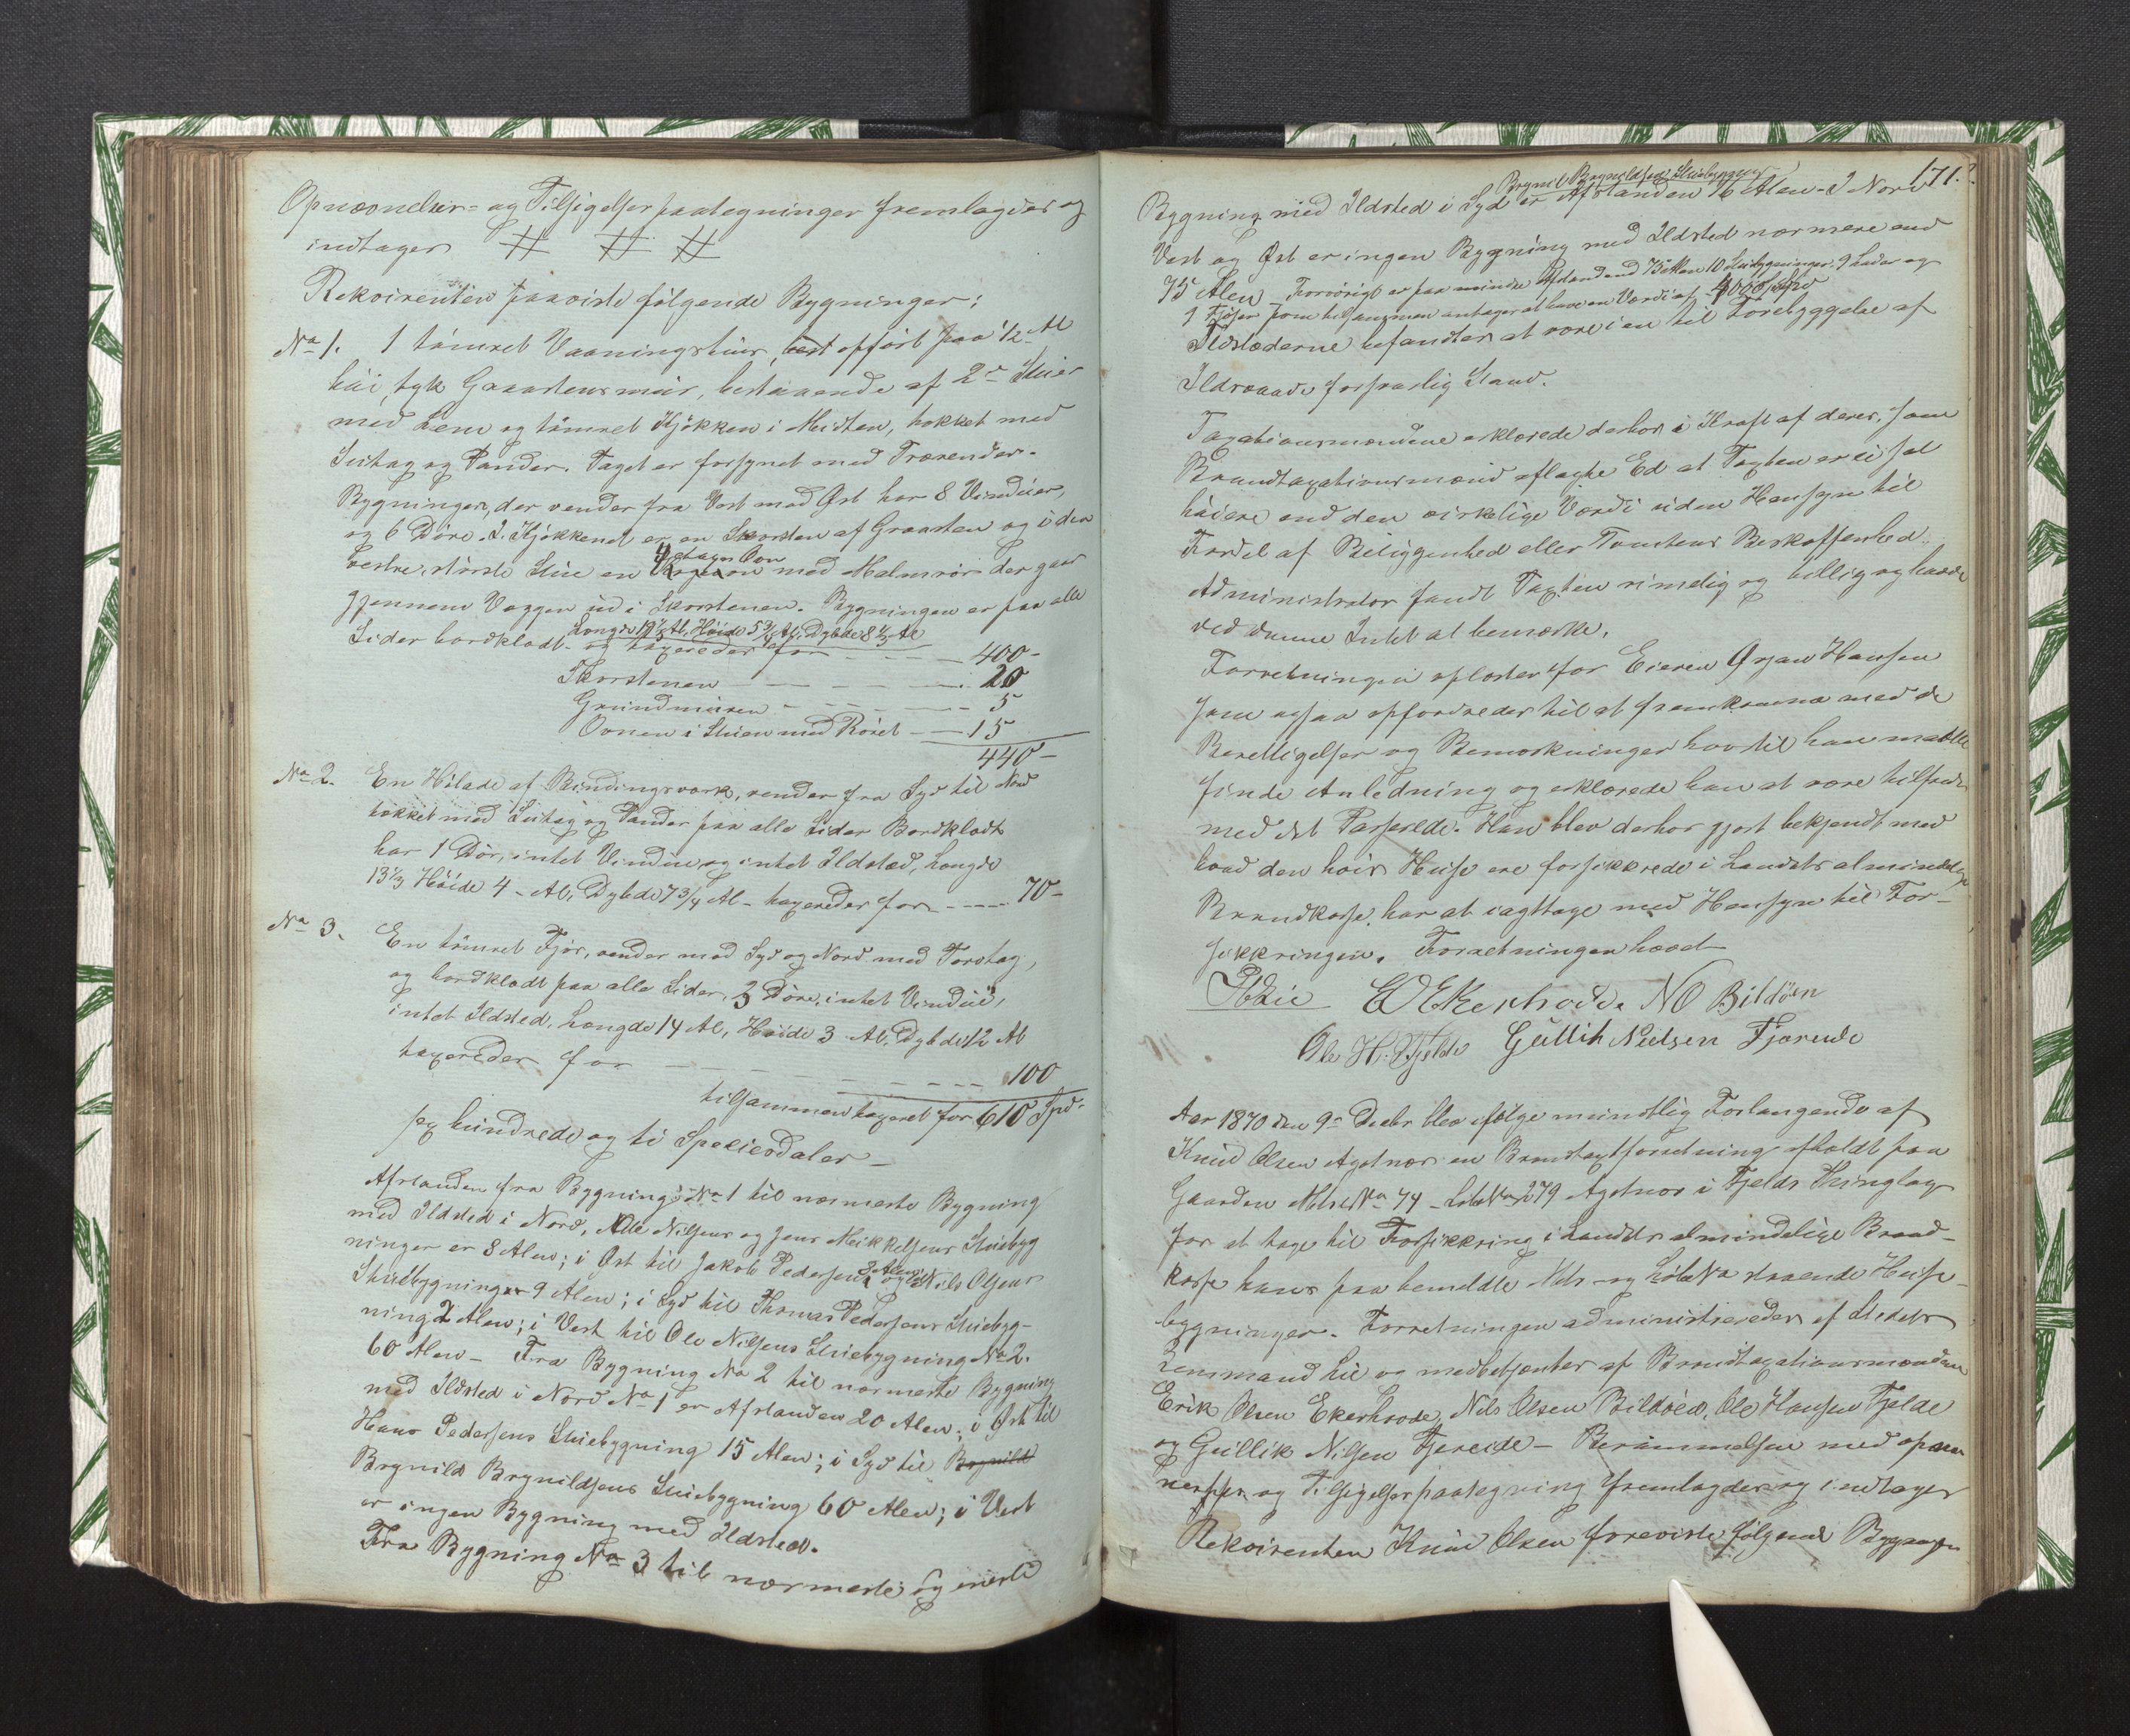 Opnævnelses- og Tilsigelsespaategninger fremlagdes og
indtages # # #
Rekvirenten paaviste følgende Bygninger:
No 1. 1 tømret Vaaningshuus, opført paa 1/2 Al
høi, tyk Graastensmuur, bestaaende af 2de Stuer
med Lem og tømret Kjøkken i Midten, tækket med
Sutag og Pander. Taget er forsynet med Trærender.
Bygningen, der vender fra Vest mod Øst har 8 Vinduer,
og 6 Døre. I Kjøkkenet er en Skorsten af Graasten og i den
vestre, største Stue en 4 etages Ovn med Malmrør der gaar
gjennem Væggen ud i Skorstenen. Bygningen er paa alle
Sider bordklædt Længde 19 1/2 Al, Høide 5 3/4 Al, Dybde 8 1/2 Al
og taxeredes for - - - 400-
Skorstenen - - - 20
Grundmuren - - - 5
Ovnen i Stuen med Røret - - 15
440-
No 2. En Hølade af Bindingsværk, vender fra Syd til Nord
tækket med Sutag og Pander paa alle Sider Bordklædt
har 1 Dør, intet Vindue og intet Ildsted, Længde
13 1/3 Høide 4 - Al, Dybde 7 3/4 Al - taxeredes for - - - 70-
No 3. En tømret Fjøs, vender mod Syd og Nord med Torvtag,
og bordklædt paa alle Sider, 3 Døre, intet Vindue,
intet Ildsted, Længde 14 Al, Høide 3 Al, Dybde 12 Al
taxeredes for - - - 100
tilsammen taxeret for 610 Spd.
sex hundrede og ti Speciedaler -
Afstanden fra Bygning No 1 til nærmeste Bygning
med Ildsted i Nord, Ole Nilsens og Jens Mikkelsens Stuebyg
ninger er 8 Alen; i Øst til Jakob Pedersens 8 Alen og Nils Olsens
Stuebygninger 9 Alen; i Syd til Thomas Pedersens Stuebyg-
ning 2 Alen; i Vest til Ole Nilsens Stuebygning No 2.
60 Alen - Fra Bygning No 2 til nærmeste Bygning
med Ildsted i Nord No 1 er Afstanden 20 Alen; i Øst til
Hans Pedersens Stuebygning 15 Alen; i Syd til Brynild
Brynild Brynildsens Stuebygning 60 Alen; i Vest
er ingen Bygning med Ildsted.
Fra Bygning No 3 til nærmeste og eneste
171.
Brynild Brynildsens Stuebygning
Bygning med Ildsted i Syd er Afstanden 16 Alen - I Nord
Vest og Øst er ingen Bygning med Ildsted nærmere end
75 Alen - Forøvrigt er paa mindre Afstand end 75 Alen 10 Stuebygninger, 9 Lader og
9 Fjøser som tilsammen antages at have en Værdi af 4000 Spd
Ildstederne befandtes at være i en til Forebyggelse af
Ildsvaade forsvarlig Stand.
Taxationsmændene erklærede derhos i Kraft af deres, som
Brandtaxationsmænd aflagte Ed at Taxten er ei sat
høiere end den virkelige Værdi uden Hensyn til
Fordel af Beliggenhed eller Tomtens Beskaffenhed.
Administrator fandt Taxten rimelig og billig og havde
ved denne Intet at bemærke.
Forretningen oplæstes for Eieren Ørjan Hansen
som ogsaa opfordredes til at fremkomme med de
Berettigelser og Bemærkninger hvortil han maatte
finde Anledning og erklærede han at være tilfreds
med det Passerede. Han blev derhos gjort bekjendt med
hvad den hvis Huse ere forsikkrede i Landets almindelige
Brandkasse har at iagttage med Hensyn til For-
sikkringen. Forretningen hævet
PLie E O Ekerhovde. N O Bildøen
Ole H. Fjelde Gullik Nielsen Fjereide
Aar 1870 den 9de Decbr blev ifølge mundtlig Forlangende af
Knud Olsen Agotnæs en Brandtaxtforretning afholdt paa
Gaarden Matr No 74 - Løbe No 279 Agotnæs i Fjelds Thinglag
for at tage til Forsikkring i Landets almindelige Brand-
kasse hans paa bemeldte Mtr - og Løbe No staaende Huse-
bygninger. Forretningen administreredes af Stedets
Lensmand Lie og medbetjentes af Brandtaxationsmændene
Erik Olsen Ekerhovde, Nils Olsen Bildøen, Ole Hansen Fjelde
og Gullik Nilsen Fjereide - Berammelsen med opnæv-
nelses og Tilsigelsespaategning fremlagdes og indtages
Rekvirenten Knud Olsen foreviste følgende Bygninger